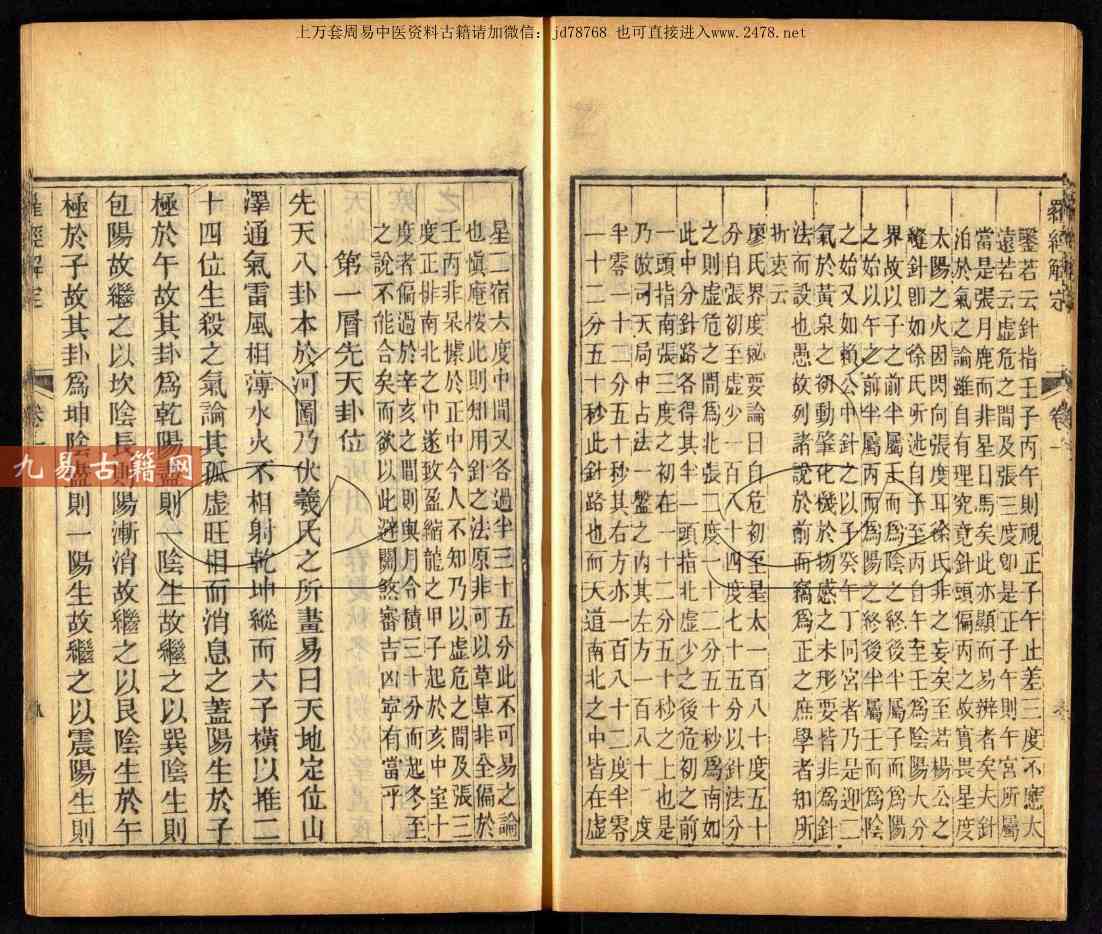 上万套周易中医资料古籍请加微信：jd78768 也可直接进入www.2478.net
羅經解宗
鑿若云針指壬子丙午則視正子午止差三度不應太
遠若云虛危之間及張三度卽是正子午則午宮所屬
當是張月鹿而非星日馬矣此亦顯而易辨者矣夫針
泊於氣之論雖自有理究竟針頭偏丙之故實畏星度
太陽之火因閃向張度耳徐氏非之妄矣至若楊公之
縫針卽如徐氏所泚自子至丙自午至壬爲陰陽大分
界故以子之前半屬壬而爲陰之終後半屬子而爲陽
之始以午之前半屬丙而爲陽之終後半屬壬而爲陰
之始又如賴公中針之以子癸午丁同宮者乃是迎二
氣於黃泉之初動肇化機於物感之未形要皆非爲針
法而設也愚故列諸說於前而竊爲正之庶學者知所
折衷云
廖氏界度秘要論曰自危初至星太一百八十度五十
分自張初至虛少一百八十四度七十五分以針法分
之則虛危之間爲北張二度一十二分五十秒爲南如
此中分針路各得其半一頭指北虛少之後危初之前
一頭指南張三度之初在一十二分五十秒之上也是
乃倣司天局中占法一盤之內其左方一百八十二度
半零一十二分五十秒其右方亦一百八十二度半零
一十二分五十秒此針路也而天道南北之中皆在虛
星二宿六度中間又各過半三十五分此不可易之論
也愼庵按此則知用針之法原非可以草草非全偏於
壬丙非呆據於正中今人不知乃以虛危之間及張三
度正排南北之中遂致盈縮龍之甲子起於亥中室十
度者偏過於辛亥之間則與月令積三十分而起冬至
之說不能合矣而欲以此避關煞審吉凶寧有當乎
第一層先天卦位
先天八卦本於河圖乃伏羲氏之所畫易曰天地定位山
澤通氣雷風相薄水火不相射乾坤縱而六子橫以推二
十四位生殺之氣論其孤虛旺相而消息之蓋陽生於子
極於午故其卦爲乾陽盡則一陰生故繼之以巽陰生則
包陽故繼之以坎陰長則陽漸消故繼之以艮陰生於午
極於子故其卦爲坤陰盡則一陽生故繼之以震陽生則
羅經解定
卷一
九易古籍网